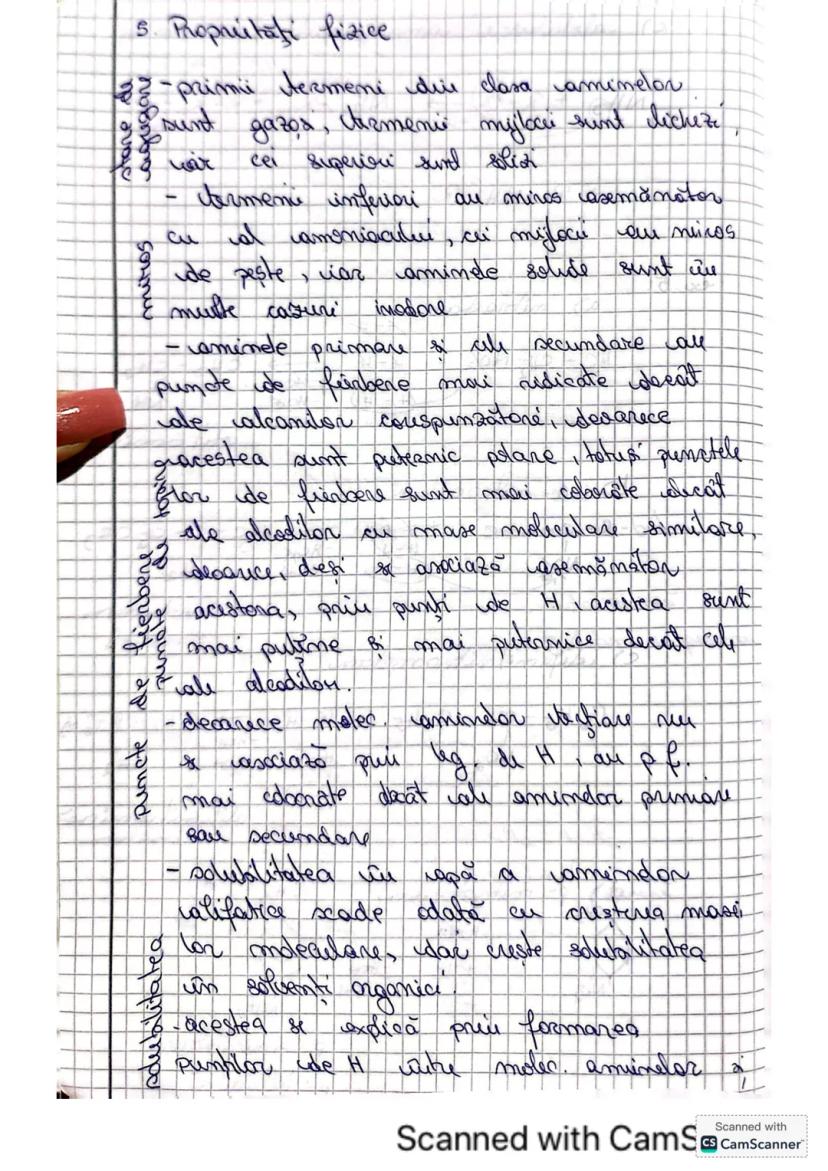 5. Proprietăți fizice
stare de agregare
- primii termeni din clasa aminelor
sunt gazoși, termenii mijlocii sunt lichizi,
iar cei superiori sunt solizi
miros
- termenii inferiori au miros asemănător
cu al amoniacului, cei mijlocii au miros
de pește, iar aminele solide sunt în
multe cazuri inodore
puncte de fierbere
puncte de topire
- aminele primare și cele secundare au
puncte de fierbere mai ridicate decât
ale alcanilor corespunzători, deoarece
acestea sunt puternic polare, totuși punctele
lor de fierbere sunt mai coborâte decât
ale alcoolilor cu mase moleculare similare,
deoarece, deși se asociază asemănător
acestora, prin punți de H, acestea sunt
mai puține și mai puternice decât cele
ale alcoolilor.
- deoarece molec. aminelor terțiare nu
se asociază prin leg. de H, au p.f.
mai coborâte decât ale aminelor primare
sau secundare
solubilitatea
- solubilitatea în apă a aminelor
alifatice scade odată cu creșterea masei
lor moleculare, dar crește solubilitatea
în solvenți organici.
- acestea se explică prin formarea
punților de H între molec. aminelor și
Scanned with CamS
Scanned with
CS CamScanner